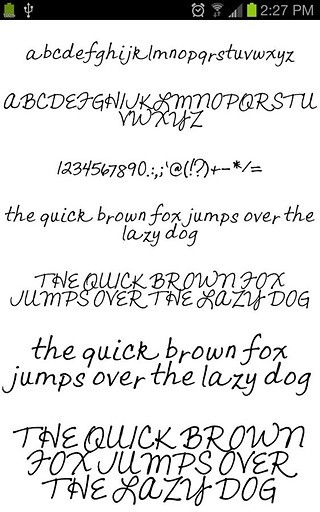 2:27 PM
abcdefghijklmnopqrstuvwxyz
ABCDEFGHIJKLMNOPQRSTU
VWXYZ
1234567890.:,;'@(!?)+-*/=
the quick brown fox jumps over the
lazy dog
THE QUICK BROWN FOX
JUMPS OVER THE LAZY DOG
the quick brown fox
jumps over the lazy dog
THE QUICK BROWN
FOX JUMPS OVER
THE LAZY DOG